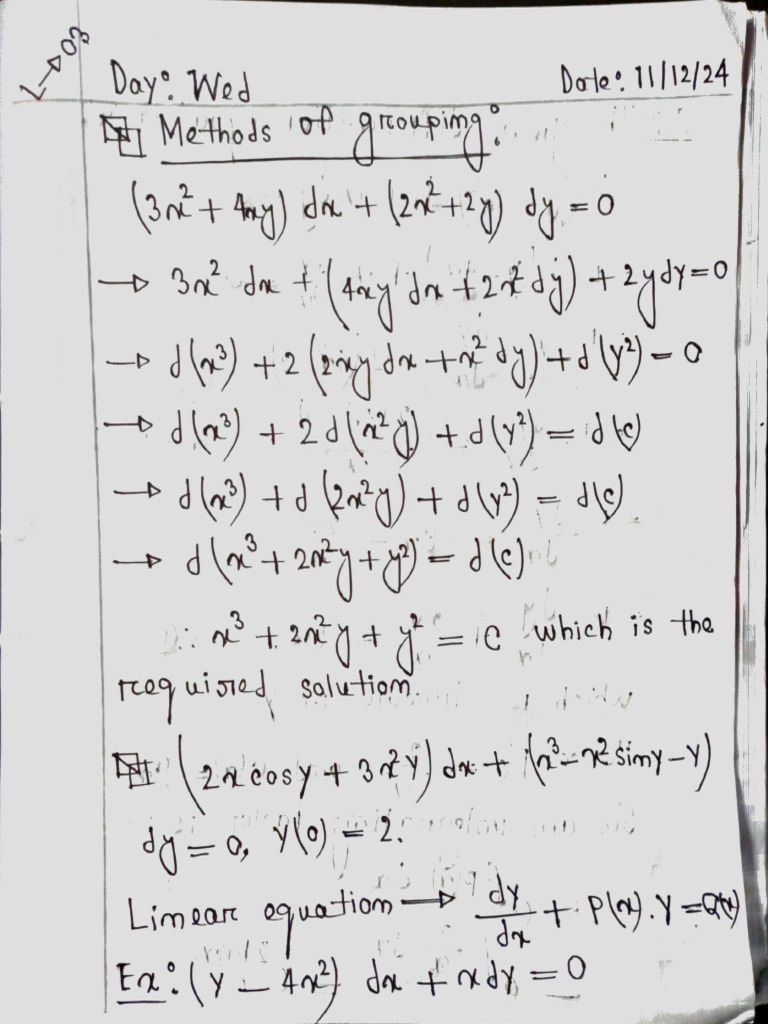 L→03
Day: Wed Date: 11/12/24
Methods of grouping:
(3x² + 4xy) dx + (2x² + 2y) dy = 0
→ 3x² dx + (4xy dx + 2x² dy) + 2y dy = 0
→ d(x³) + 2(2xy dx + x² dy) + d(y²) = 0
→ d(x³) + 2d(x²y) + d(y²) = d(c)
→ d(x³) + d(2x²y) + d(y²) = d(c)
→ d(x³ + 2x²y + y²) = d(c)
∴ x³ + 2x²y + y² = c which is the
required solution.
(2x cosy + 3x²y) dx + (x³ - x² siny - y)
dy = 0, y(0) = 2.
Linear equation → dy/dx + P(x).y = Q(x)
Ex: (y - 4x²) dx + x dy = 0